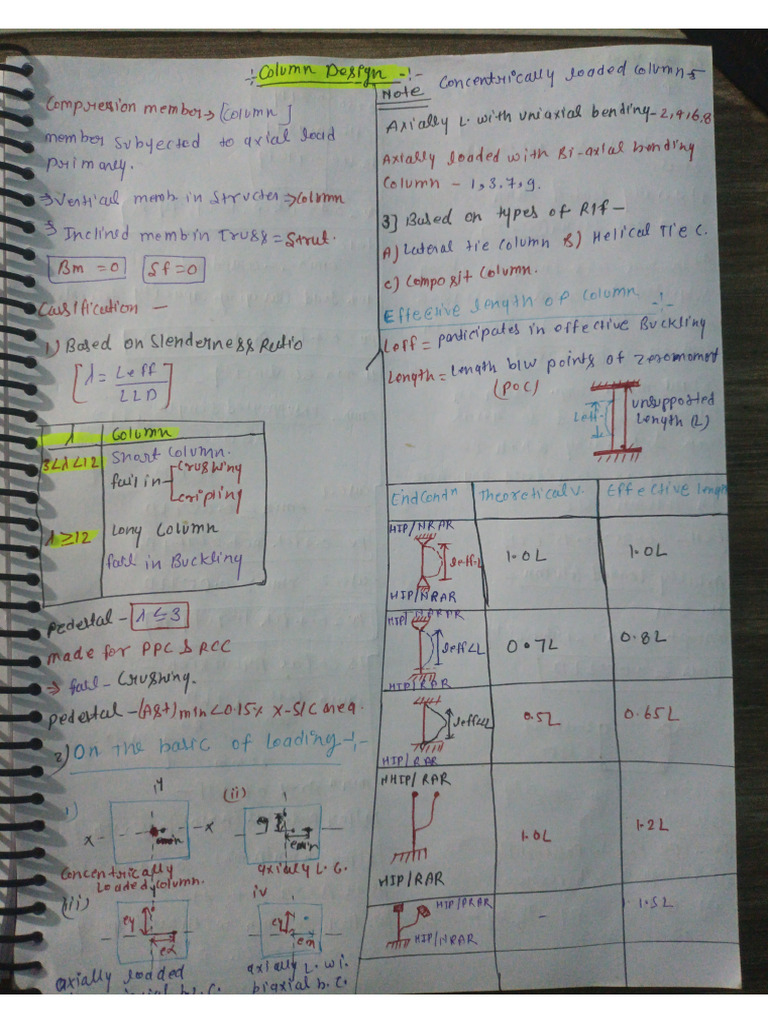 -:- Column Design -:-
Compression member → [Column]
member subjected to axial load
primarey.
⇒ Vertical memb in Structer ⇒ Column
⇒ Inclined memb in Truss = Strut.
Bm = 0 Sf = 0
Classification —
1) Based on Slenderness Ratio
[λ = Leff / LLD]
λ Column
3<λ<12 Short Column.
fail in Crushing
Cripling
λ≥12 Long Column
fail in Buckling
Pedestal - λ ≤ 3
made for PPC & RCC
⇒ fail - Crushing.
Pedestal - (Ast)min < 0.15% X-S/C area.
2) On the basic of Loading -:-
i) y
x x
emin
Concentrically
Loaded column.
(ii)
ey
emin
axially L. C.
(iii)
ey
ex
axially loaded
iv
ey
ex
axially L. wi.
biaxial b. C.
Note Concentrically loaded column - 5
Axially L. with uniaxial bending - 2,4,6.8
Axially loaded with Bi-axial bending
Column - 1,3.7,9.
3] Based on types of R/f —
A) Lateral tie column B) Helical Tie C.
C) Composit Column.
Effective length of Column -:-
Leff = participates in effective Buckling
Length = Length b/w points of zeromoment
(POC)
Leff
unsupported
Length (L)
EndContn Theoretical v. Effective length
HIP/NRAR
Leff=L 1.0L 1.0L
HIP/NRAR
HIP/NRAR
leff<L 0.7L 0.8L
HIP/RAR
leff<L 0.5L 0.65L
HIP/RAR
NHIP/RAR
1.0L 1.2L
HIP/RAR
HIP/PRAR
- 1.5L
HIP/NRAR